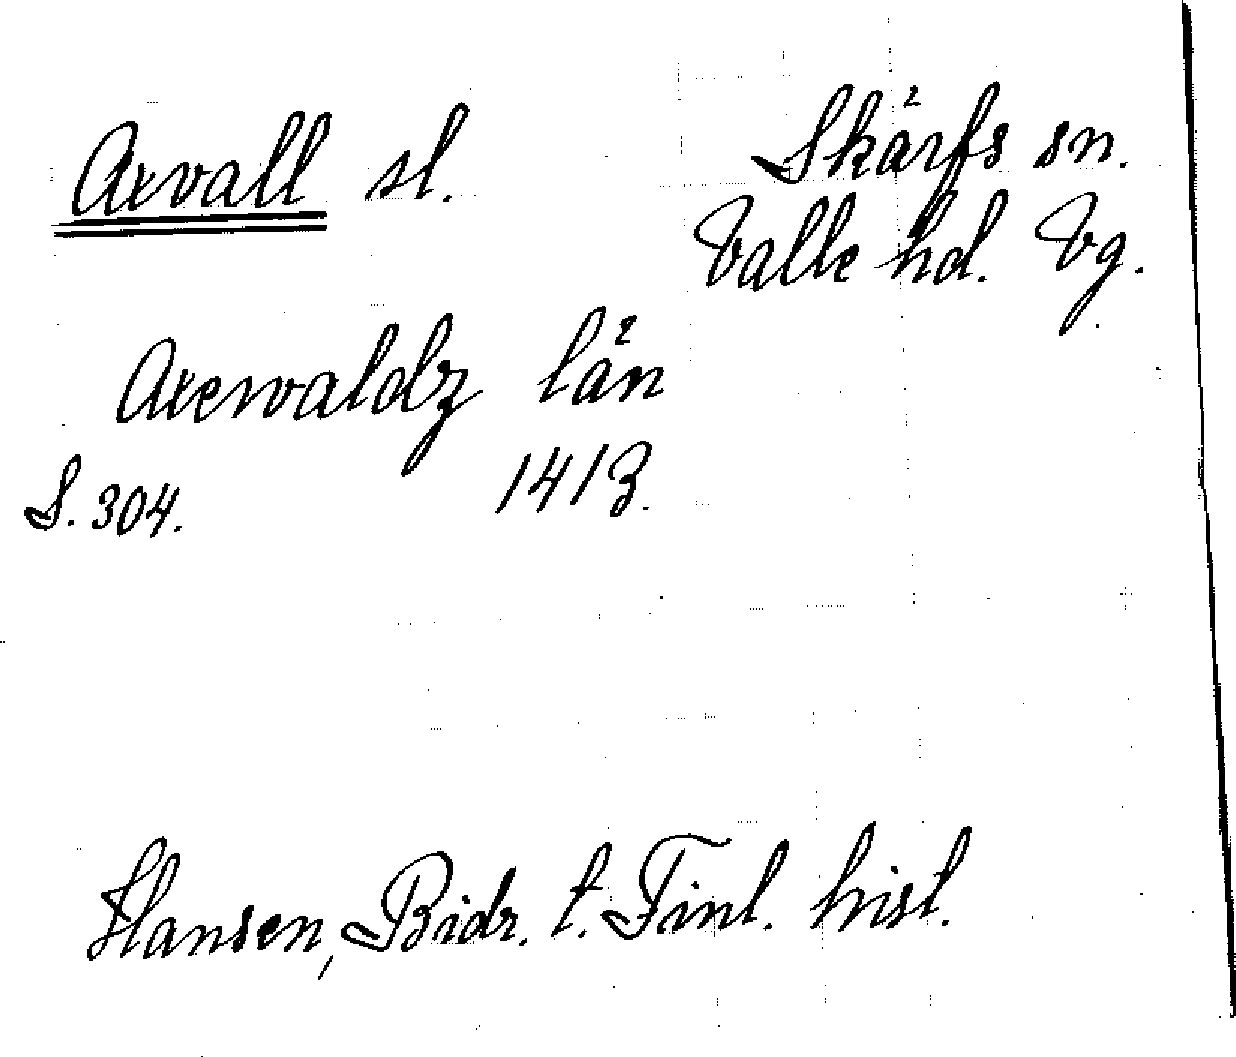 Axvall sl. Skärfs sn.
Valle hd. Vg.
Axewaldz län
S. 304. 1413.
Hansen, Bidr. t. Finl. hist.